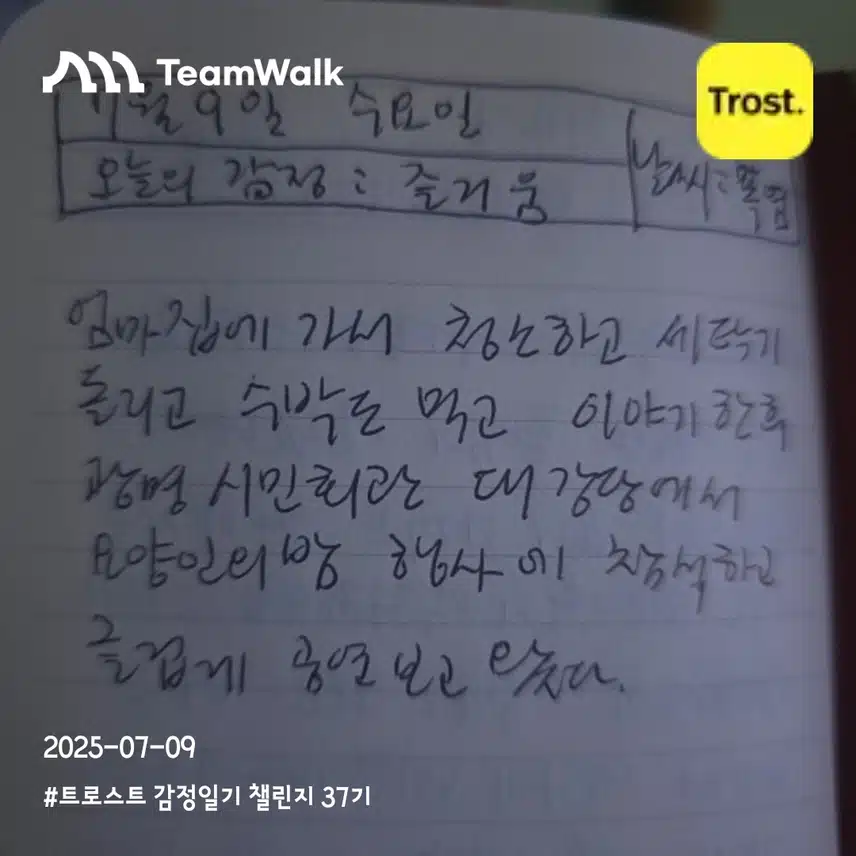 TeamWalk
Trost.
7월 9일 수요일
오늘의 감정 : 즐거움
날씨 : 폭염
엄마집에 가서 청소하고 세탁기
돌리고 수박도 먹고 이야기한후
광명 시민회관 대강당에서
요양인의밤 행사에 참석하고
즐겁게 공연보고 왔다.
2025-07-09
#트로스트 감정일기 챌린지 37기